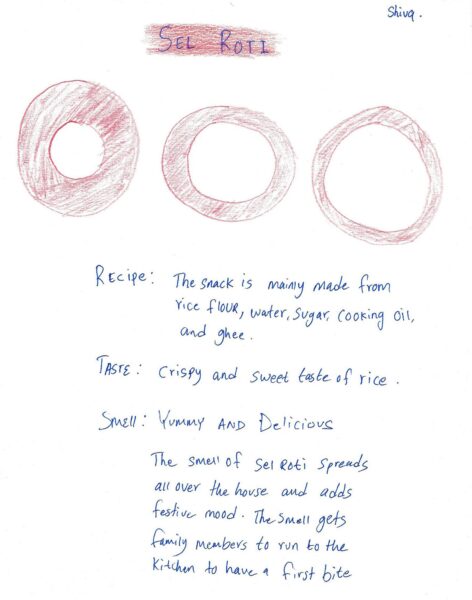 Shiva.
SEL ROTI
Recipe: The snack is mainly made from
rice flour, water, sugar, cooking oil,
and ghee.
Taste: Crispy and sweet taste of rice.
Smell: Yummy AND Delicious
The smell of Sel Roti spreads
all over the house and adds
festive mood. The smell gets
family members to run to the
kitchen to have a first bite